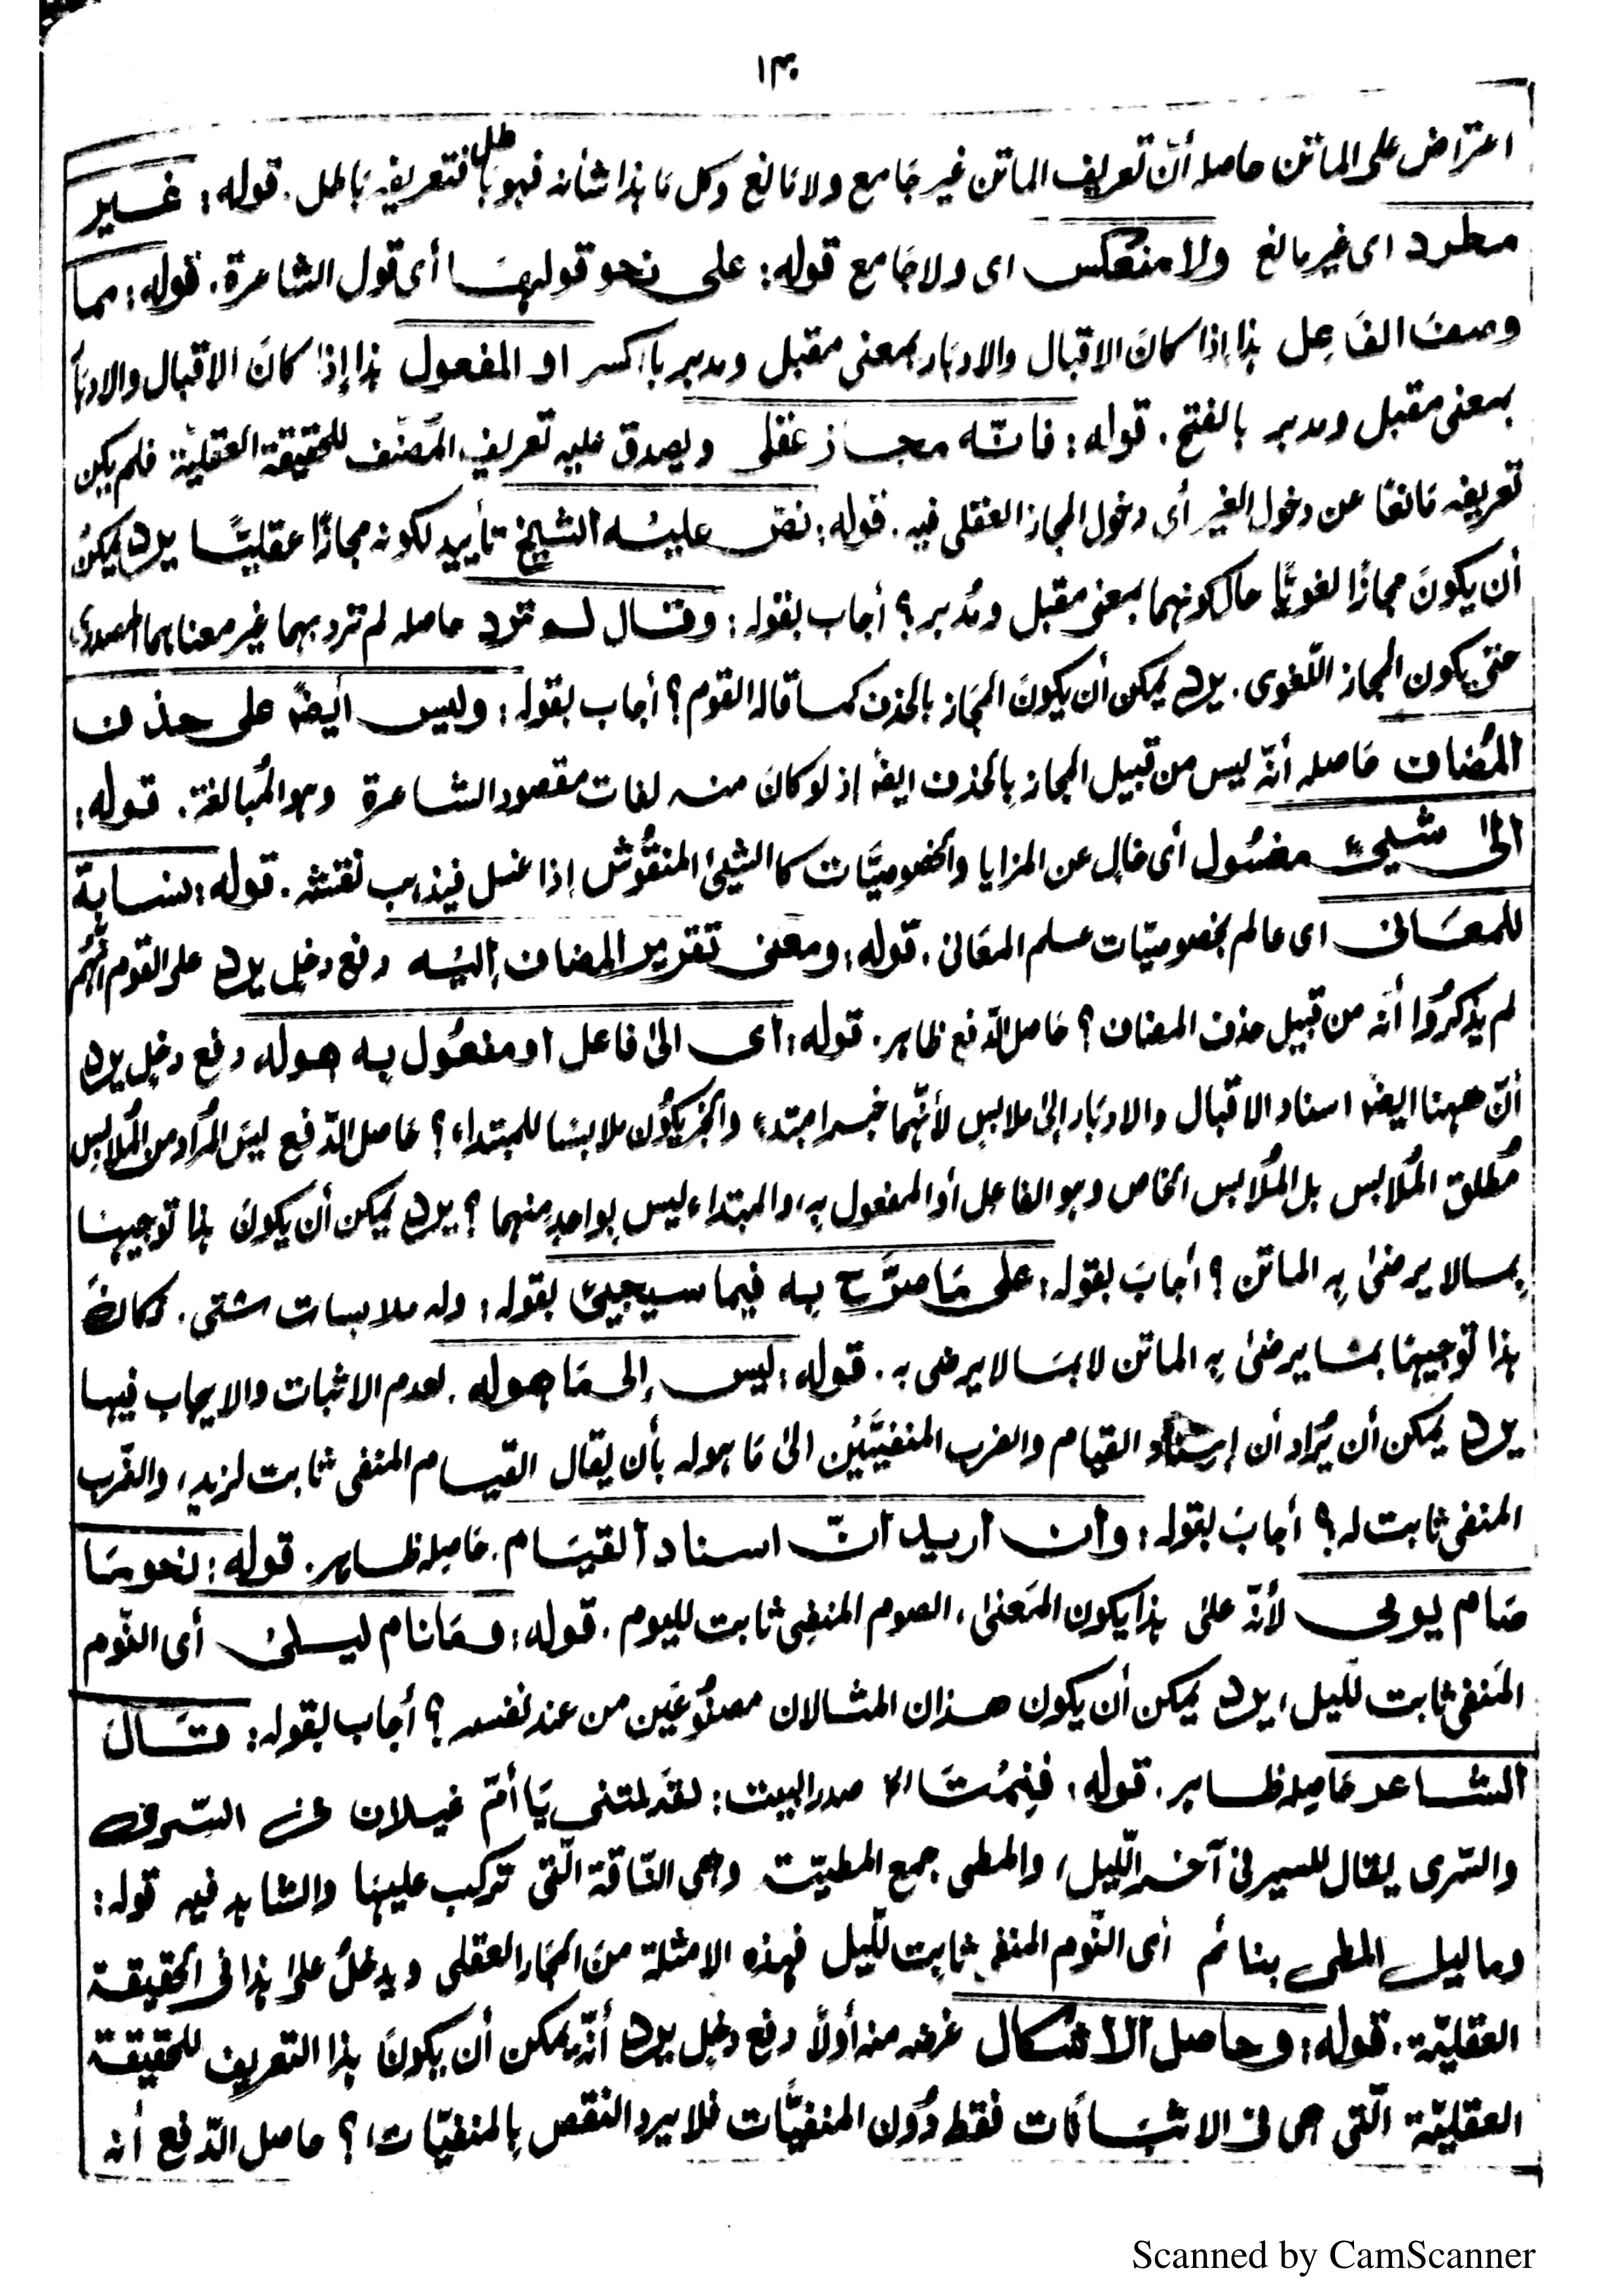 ١٣٠
اعتراض على الماتن حاصله أنّ تعريف الماتن غير جَامع ولا مَانع وكل مَا هٰذا شأنه فهو بَاطل فتعريفه بَاطل. قوله: غسير
مطرد اى غير مانع ولا منعكس اى ولا جَامع قوله: على نحو قولهسَا أى قول الشاعرة. قوله: مما
وصف الفَاعِل هذا إذا كانَ الاقبال والادبَار بمعنى مقبل ومدبر بالكسر او المفعول هذا إذا كانَ الاقبال والادبَار
بمعنى مقبل ومدبر بالفتح. قوله: فانّه مجاز عقلى ويصدق عليه تعريف المصنّف للحقيقة العقليّة فلم يكن
تعريفه مَانعًا عن دخول الغير أى دخول المجاز العقلى فيه. قوله: نصّ عليه الشيخ تأييد لكونه مجازًا عقليًّا يرد يمكنُ
أن يكونَ مجازًا لغويًّا حال كونهما بمعنى مقبل ومُدبر؟ أجاب بقوله: وقال لم ترد حاصله لم ترد بهما غير معناهما المصدرى
حتى يكون المجاز اللّغوى. يرد يمكن أن يكونَ المجَاز بالحذف كما قاله القوم؟ أجاب بقوله: وليس أيضًا على حذف
المُضاف حَاصله أنّه ليس من قبيل المجاز بالحذف ايضًا إذ لو كانَ منه لفات مقصود الشاعرة وهو المُبالغة. قوله:
الىٰ شيئ مغسُول أى خالٍ عن المزايا والخصوصيَّات كالشيئ المنقُوش إذا غسل فيذهب نقشه. قوله: نسابة
للمعَانى اى عالم بخصوصيّات علم المعَانى. قوله: ومعنى تقدير المضاف إليَه دفع دخلٍ يرد على القوم أنّهُم
لم يذكرُوا أنّه من قبيل حذف المضاف؟ حَاصل الدّفع ظاهر. قوله: أى الىٰ فاعل أو مفعُول به هوله دفع دخلٍ يرد
أنّ ههنا ايضًا اسناد الاقبال والادبَار إلىٰ ملابسٍ لأنّهما خبر المبتدء والخبر يكُون ملابسًا للمبتداء؟ حَاصل الدّفع ليسَ المُراد من المُلابس
مُطلق المُلابس بل المُلابس الخاص وهو الفاعل أو المفعول به، والمبتداء ليس بواحدٍ منهما؟ يرد يمكن أن يكونَ هٰذا توجيهًا
بمالا يرضىٰ به الماتن؟ أجابَ بقوله: على مَا صرَّح به فيما سيجيئ بقوله: وله ملابسات شتى. فكانَ
هذا توجيهًا بمَا يرضىٰ به الماتن لا بمَا لا يرضى به. قوله: ليس إلى مَا هوله. لعدم الاثبات والايجاب فيها
يرد يمكن أن يُراد أن إسناد القيام والضرب المنفيَّيْن الىٰ مَا هوله بأن يقال القيام المنفى ثابت لزيدٍ، والضّرب
المنفى ثابت له؟ أجابَ بقوله: وأن أريد أنّ اسناد القيَام. حَاصله ظاهر. قوله: نحو مَا
صَام يومى لأنّه علىٰ هذا يكون المَعنىٰ، الصوم المنفِى ثابت لليوم. قوله: ومَا نام ليلىٰ أى النّوم
المَنفى ثابت للّيل، يرد يمكن أن يكون هذان المثالان مصنُوعَين من عند نفسه؟ أجاب بقوله: قَالَ
الشاعر حَاصله ظاهر. قوله: فَنِمُتَ الا صدر البيت: لقَد لمتنى يَا أمّ غيلان فى السّرى
والسّرى يقال للسير فى آخر اللّيل، والمطى جمع المطيّت وهى النّاقة الّتى تركب عليهَا والشاهد فيه قوله:
وما ليل المطى بنائم أى النّوم المنفى ثابت للّيل فهذه الامثلة منَ المجَاز العقلى ويدخلُ علىٰ هذا فى الحقيقة
العقليّة. قوله: وحاصل الاشكال غرضه منه أولًا دفع دخلٍ يرد أنّه يمكن أن يكونَ هٰذا التعريف للحقيقة
العقليّة الّتى هى فى الاثبَاتَات فقط دُون المنفيَّات فلا يرد النقص بالمنفيّات؟ حاصل الدّفع أنه
Scanned by CamScanner